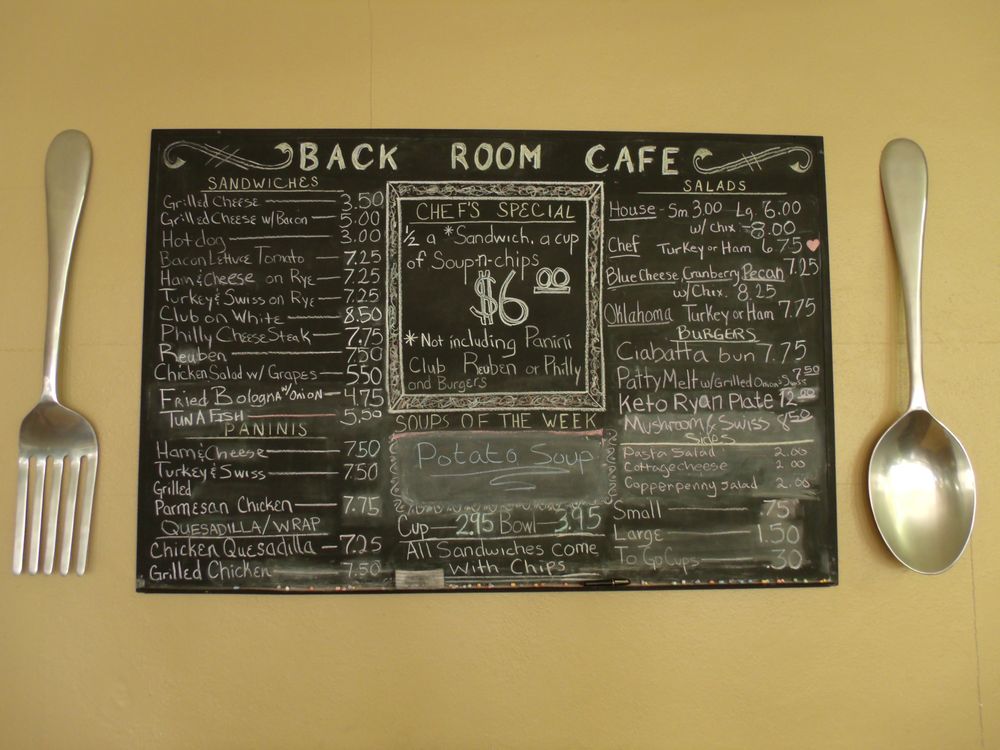 BACK ROOM CAFE
SANDWICHES
Grilled Cheese 3.50
Grilled Cheese w/ Bacon 5.00
Hot dog 3.00
Bacon Lettuce Tomato 7.25
Ham & Cheese on Rye 7.25
Turkey & Swiss on Rye 7.25
Club on White 8.50
Philly Cheese Steak 7.75
Reuben 7.50
Chicken Salad w/ Grapes 5.50
Fried Bologna w/ Onion 4.75
TUNA FISH 5.50
PANINIS
Ham & Cheese 7.50
Turkey & Swiss 7.50
Grilled
Parmesan Chicken 7.75
QUESADILLA/WRAP
Chicken Quesadilla 7.25
Grilled Chicken 7.50
CHEF'S SPECIAL
1/2 a *Sandwich, a cup
of Soup-n-chips
$6.00
*Not including Panini
Club Reuben or Philly
and Burgers
SOUPS OF THE WEEK
Potato Soup
Cup 2.95 Bowl 3.95
All Sandwiches come
With Chips
SALADS
House - Sm 3.00 Lg. 6.00
w/ chix - 8.00
Chef Turkey or Ham 6.75
Blue Cheese, Cranberry, Pecan 7.25
w/ Chix. 8.25
Oklahoma Turkey or Ham 7.75
BURGERS
Ciabatta bun 7.75
Patty Melt w/ Grilled Onions & Swiss 7.50
Keto Ryan Plate 12.00
Mushroom & Swiss 8.50
SIDES
Pasta Salad 2.00
Cottage cheese 2.00
Copperpenny Salad 2.00
Small .75
Large 1.50
To Go Cups .30